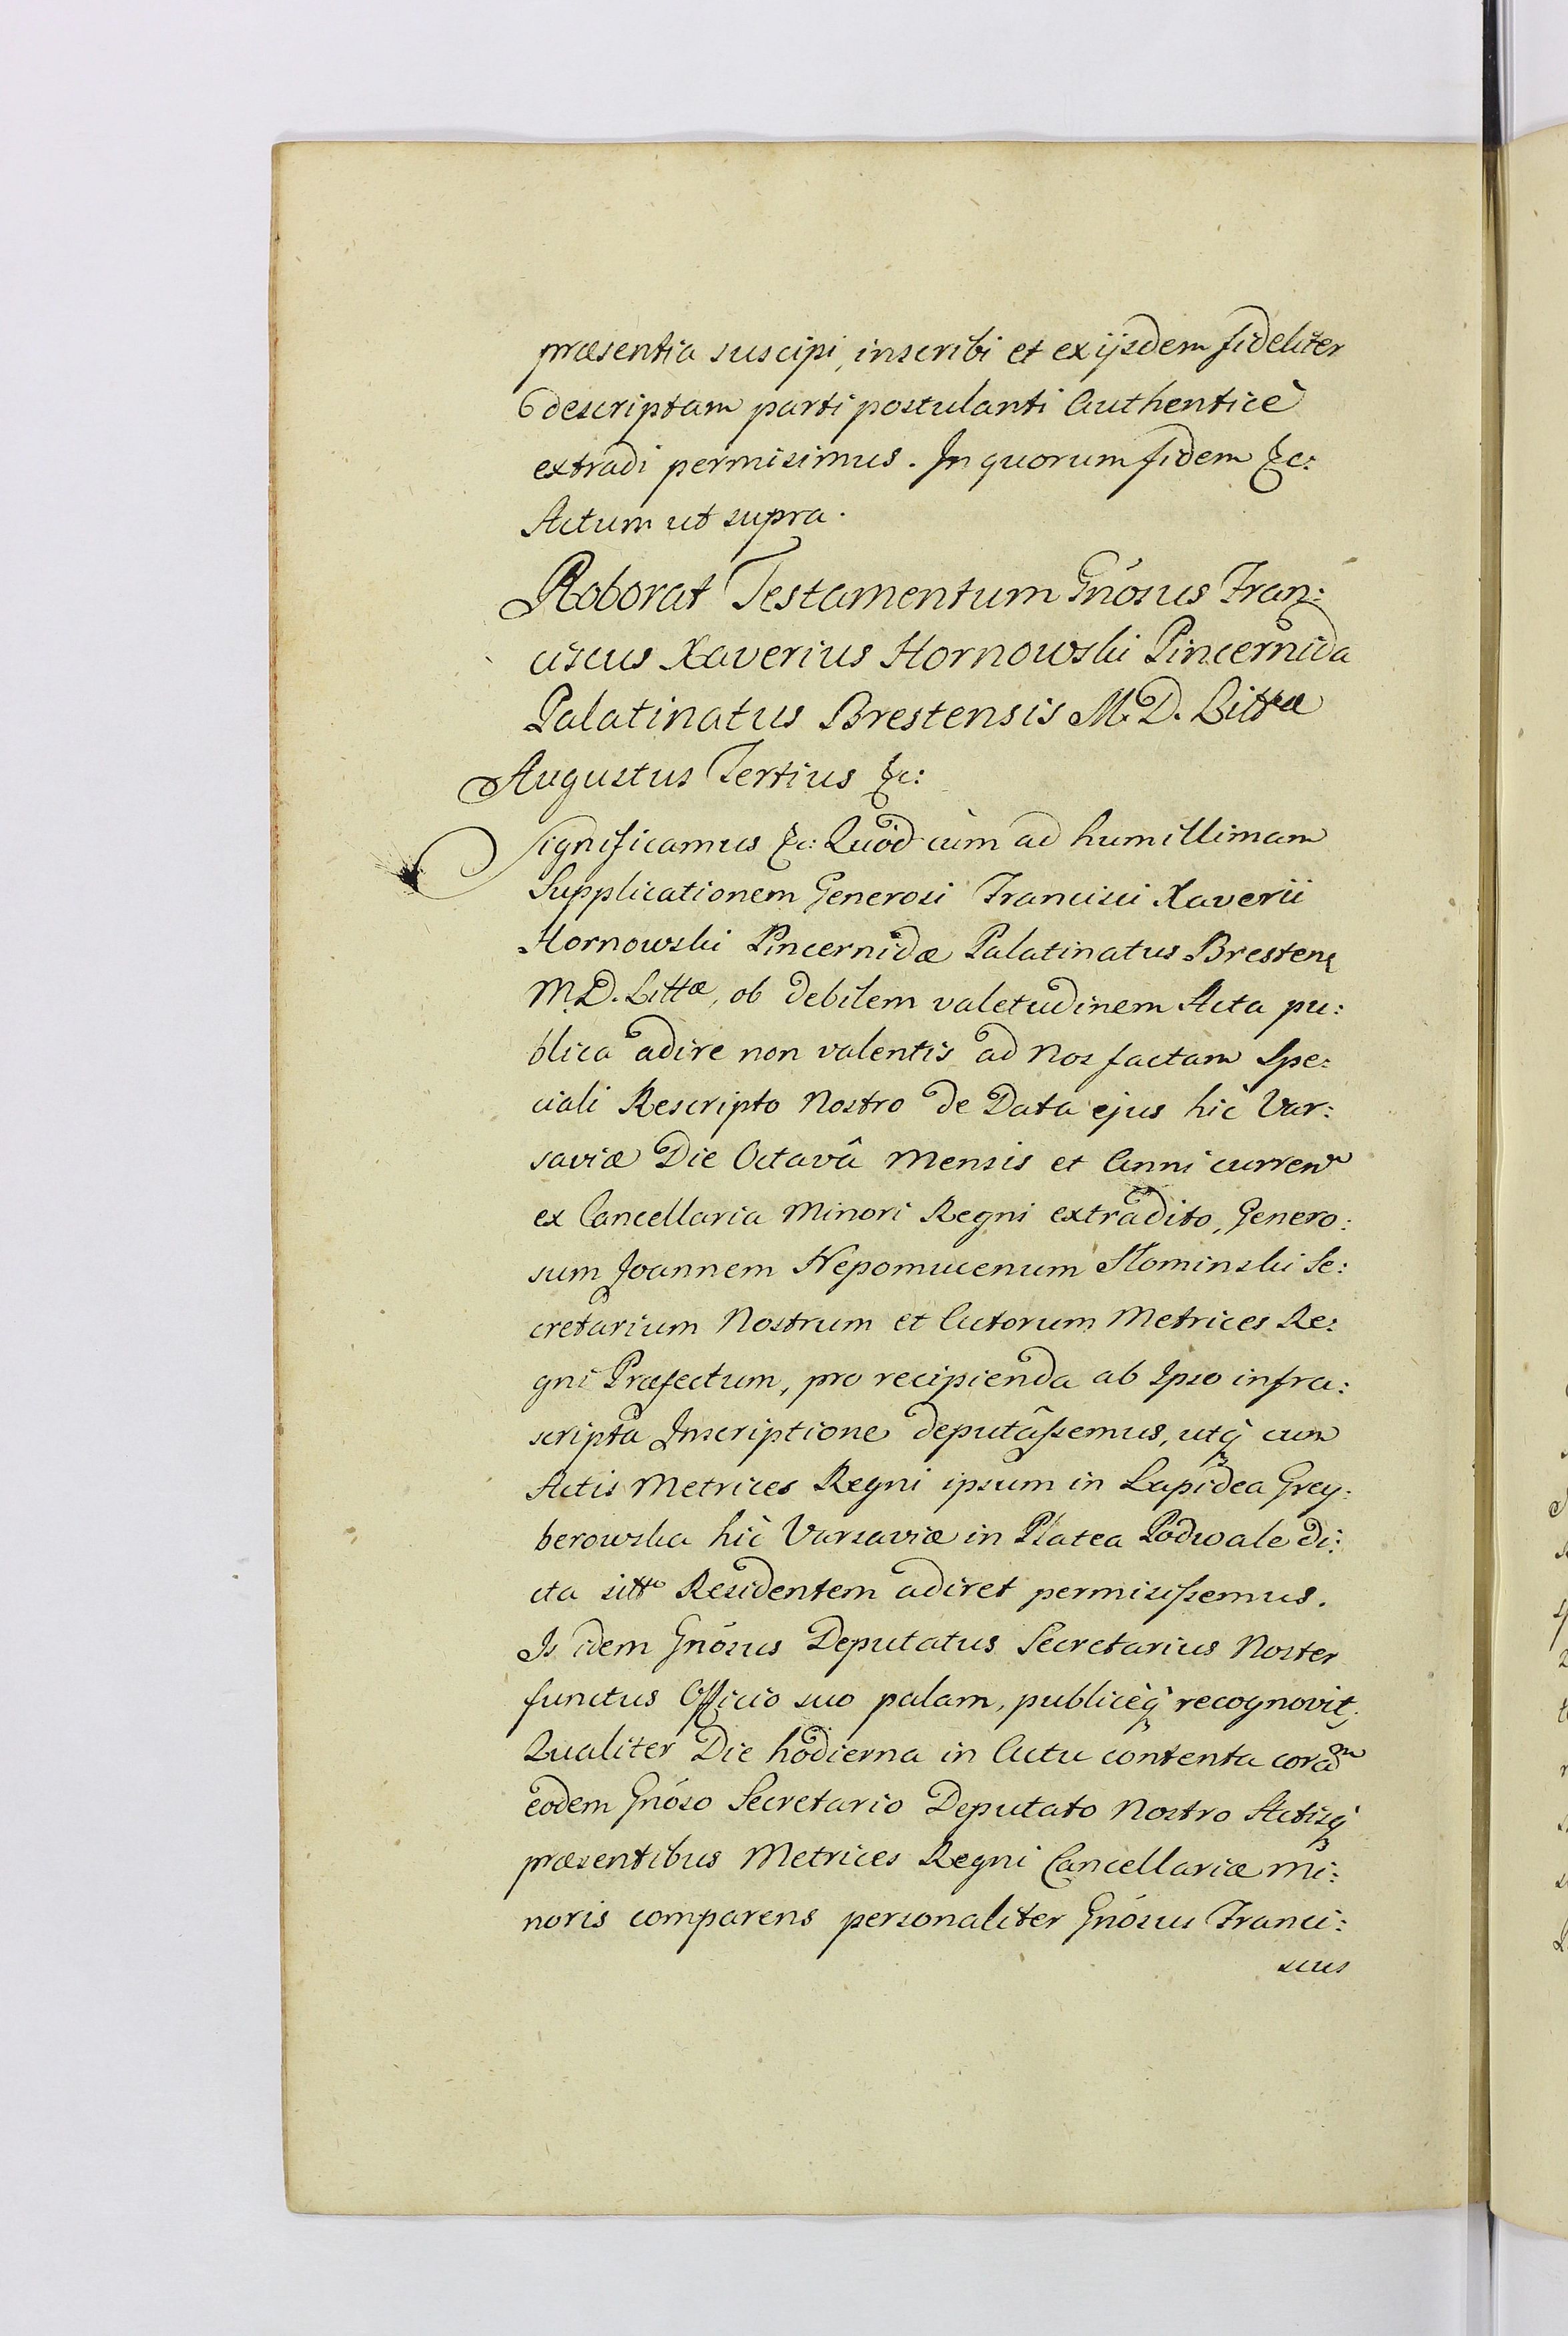 præsentia suscipi, inscribi et ex ijsdem fideliter
descriptam parti postulanti Authenticè
extradi permisimus. In quorum fidem &c:
Actum ut supra.
Roborat Testamentum Gnósus Fran:
ciscus Xaverius Hornowski Pincernida
Palatinatus Brestensis M. D. Littæ
Augustus Tertius &c:
Significamus &c: Quòd cùm ad humillimam
Supplicationem Generosi Francisci Xaverii
Hornowski Pincernidæ Palatinatus Bresten
M. D. Littæ, ob debilem valetudinem Acta pu:
blica adire non valentis ad Nos factam Spe:
ciali Rescripto Nostro de Data ejus hìc Var:
saviæ Die Octavâ Mensis et Anni curren
ex Cancellaria Minori Regni extradito, Genero:
sum Joannem Nepomucenum Slominski Se:
cretarium Nostrum et Actorum Metrices Re:
gni Præfectum, pro recipienda ab Ipso infra:
scripta Inscriptione deputâssemus, utq cum
Actis Metrices Regni ipsum in Lapidea Grey:
berowska hìc Varsaviæ in Platea Podwale di:
cta sitt Residentem adiret permisissemus.
Is idem Gnósus Deputatus Secretarius Noster
functus Officio suo palam, publicèq recognovit,
Qualiter Die hodierna in Actu contenta coram
eodem Gnóso Secretario Deputato Nostro Actisq
præsentibus Metrices Regni Cancellariæ Mi:
noris comparens personaliter Gnósus Franci:
scus